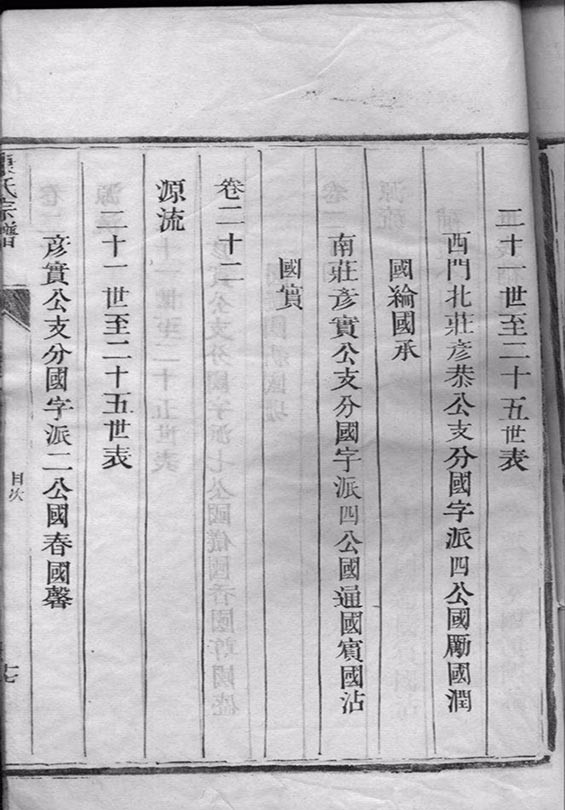 二十一世至二十五世表
西門北莊彥恭公支分國字派四公國勵國潤
國綸國承
南莊彥實公支分國字派四公國通國賓國沾
國實
卷二十二
源流
二十一世至二十五世表
彥實公支分國字派二公國春國馨
氏宗譜
目次
七